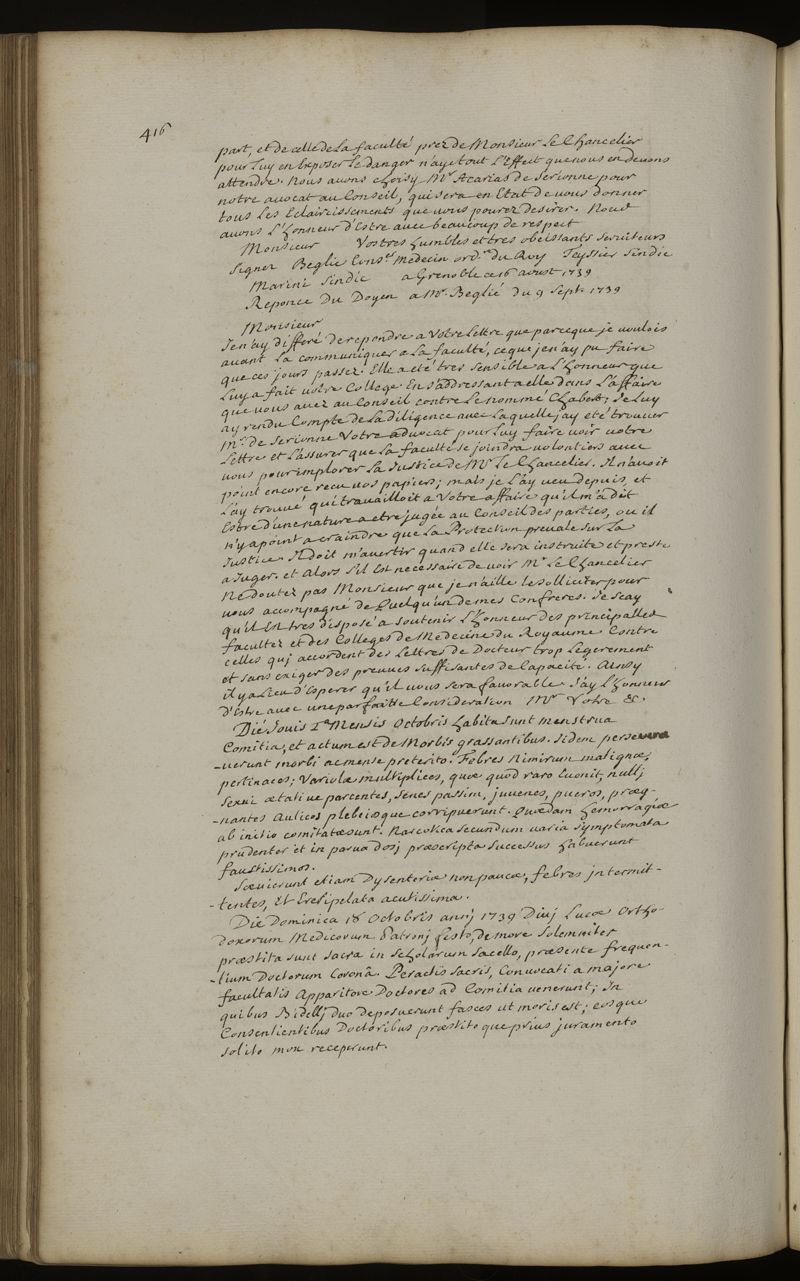 416
part, et de celle de La faculté prez de Monsieur Le Chancelier
pour Luy en Exposer Le danger n'aye tout L'Effect que nous en devons
attendre. Nous avons choisy Mr. Acarias de Serionne pour
notre avocat au Conseil, qui sera en Etat de vous donner
tous Les Eclaircissements que vous pourez desirer. Nous
avons L'Honneur d'Estre avec beaucoup de respect
Monsieur Vos tres humbles et tres obeissants serviteurs
Signez Beglié Conser. Medecin ord.re du Roy Teyssier Sindic
Marini Sindic a Grenoble ce 16 aoust 1739
Reponce Du Doyen a Mr. Beglié du 9 Sept. 1739
Monsieur
Je n'ay differé de repondre a Votre Lettre que parceque je voulois
avant La communiquer a La faculté, ce que je n'ay pu faire
que ces jours passez. Elle a eté tres sensible a L'Honneur que
Luy a fait votre College En s'addressant a elle dans L'affaire
que vous avez au Conseil contre Le nommé Chabert; Je Luy
ay rendu Compte de La diligence avec Laquelle j'ay eté trouver
Mr. de Serionne Votre advocat pour Luy faire voir votre
Lettre et L'assurer que La faculté se joindra volontiers avec
vous pour implorer La Justice de Mr. Le Chancelier. Il n'avoit
point encore recu vos papiers; mais je L'ay veu depuis, et
L'ay trouvé qui travailloit a Votre affaire qu'il m'a dit
Estre d'une nature a etre jugée au Conseil des parties, ou il
n'y a point a craindre que La Protection prevale sur La
Justice. Il doit m'avertir quand elle sera instruite et preste
a Juger. et Alors s'il Est necessaire de voir Mr. Le Chancelier
Ne doutez pas Monsieur que je n'aille Le solliciter pour
vous acompagné de Quelqu'un de mes Confreres. Je scay
qu'il Est tres disposé a soutenir L'Honneur des principalles
facultez et des Colleges de Medecine du Royaume Contre
celles qui accordent des Lettres de Docteur trop Legerement
et sans exiger des preuves suffisantes de Capacité. Ainsy
il y a Lieu d'Esperer qu'il vous sera favorable. J'ay L'Honneur
d'Estre avec une parfaitte Consideration Mr. Votre &c.
Die Jovis 1a. Mensis Octobris habita sunt menstrua
Comitia, et actum est de Morbis grassantibus. Iidem perseve-
-uerunt morbi ac mense preterito. Febres nimirum malignæ,
pertinaces; Variolæ multiplices, quæ quod raro Evenit, nullj
sexui ætati ve parcentes, senes passim, juvenes, pueros, præg-
-nantes Aulicos plebeiosque corripuerunt. Quasdam hemorragiæ
ab initio comitatæ sunt. Narcotica secundum varia symptomata
prudenter et in parva dosj præscripta successus habuerunt
faustissimos.
Sævierunt etiam Dysenteriæ non paucæ, febres jntermit-
-tentes, Et Eresipelata acutissima.
Die Dominica 18 Octobris annj 1739 Divj Lucæ Ortho-
doxorum Medicorum Patronj festo, de more solemniter
præstita sunt sacra in scholarum sacello, præsente frequen-
-tium Doctorum Coronâ. Peractis sacris, Convocati a majore
facultatis Apparitore Doctores ad Comitia venerunt; In
quibus Bidellj duo deposuerunt fasces ut moris est; eosque
Consentientibus Doctoribus præstito que prius juramento
solito mox receperunt.